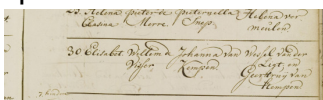 25 Helena Pieter de Pieternella Helena ver
Clasina Morre. Snep. meulen
30 Elisabet. Willem de Johanna van Roefel van der
Visser Kempen Ligt, en
Geertruy van
Kempen